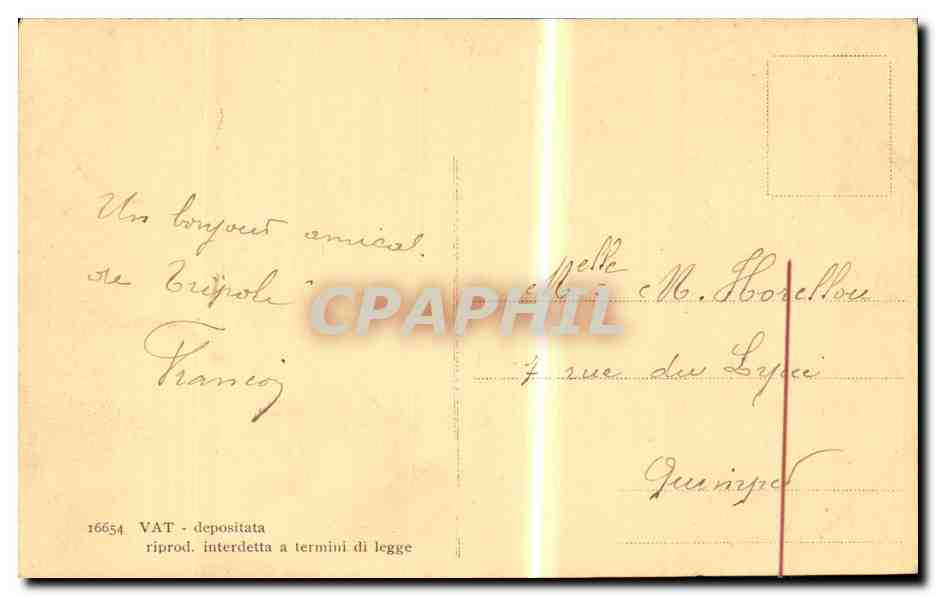 Un bonjour amical
de Tripoli
François
Melle M. Horellou
7 rue du Lycée
Quimper
CPAPHIL
16654 VAT - depositata
riprod. interdetta a termini di legge